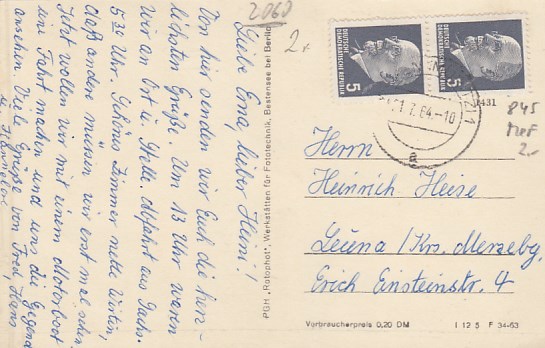 Liebe Erna, lieber Heini!
Von hier senden wir Euch die herz-
lichsten Grüße. Um 13 Uhr waren
wir an Ort u. Stelle. Abfahrt aus Sachs.
5.30 Uhr. Schönes Zimmer nette Wirtin,
alles andere müssen wir erst mal sehen.
Jetzt wollen wir mit einem Motorboot
eine Fahrt machen und uns die Gegend
ansehen. Viele Grüße von Fred, Hans
2060
2,-
PGH „Rotophot“, Werkstätten für Fototechnik, Bestensee bei Berlin
DEUTSCHE
DEMOKRATISCHE REPUBLIK
5
DEUTSCHE
DEMOKRATISCHE REPUBLIK
5
7.64-10
a
1431
845
MeF
2,-
Herrn
Heinrich Heise
Leuna / Krs. Merzebg.
Erich Einsteinstr. 4
Verbraucherpreis 0,20 DM
I 12 5 F 34-63